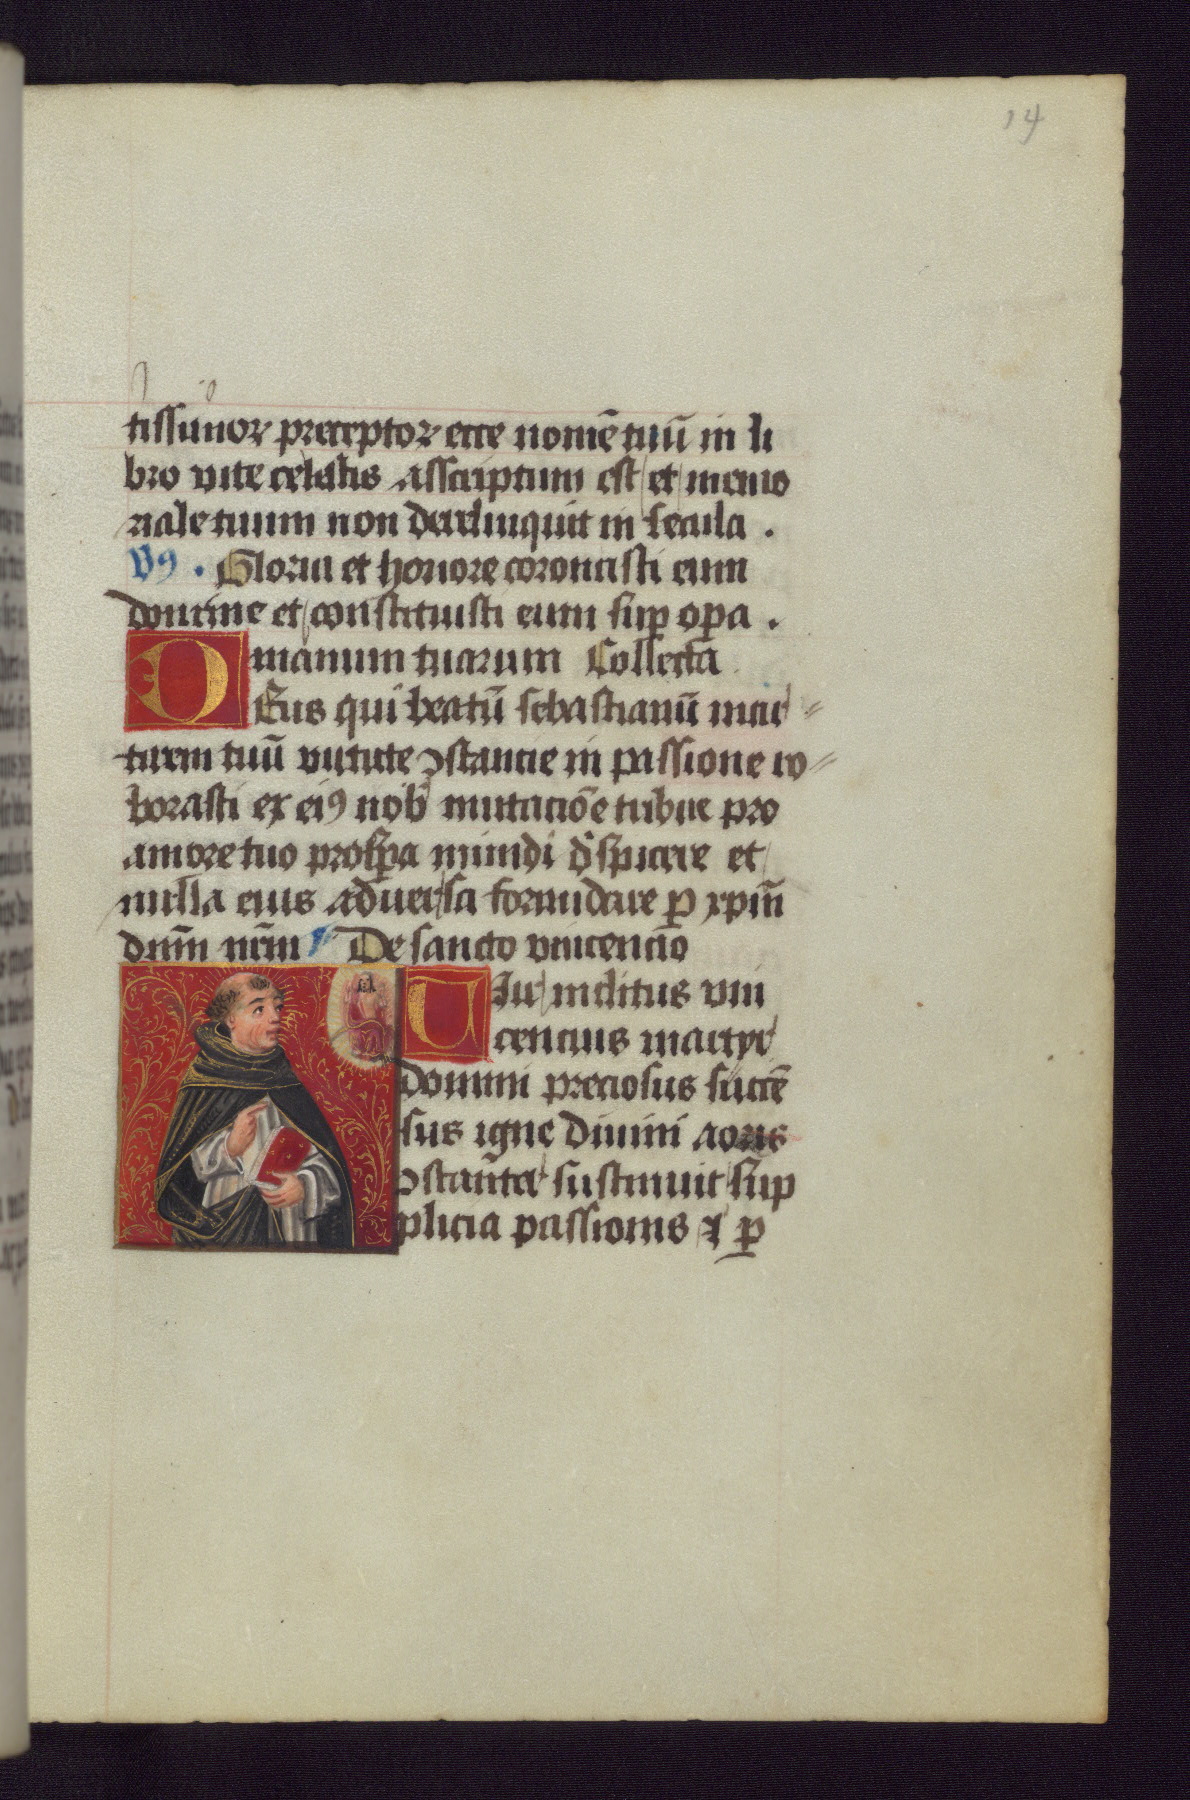 14
tissimor preceptor ecce nomē tuū in li
bro vite celestis asscriptum est et memo
riale tuum non derelinquit in secula .
Vꝰ . Gloria et honore coronasti eum
domine et constituisti eum sup̄ oꝑa .
manuum tuarum Collecta
D Eus qui beatū sebastianū mar=
tirem tuū virtute ꝯstancie in passione ro=
borasti ex eiꝰ nob̄ imitaciōe tribue pro
amore tuo prosꝑa mundi dispicere et
nulla eius aduersa formidare ꝑ xp̄m
dn̄m nr̄m De sancto vincencio
U Ir inclitus vin
cencius martyr
domini preciosus succē
sus igne diuini aoris
ꝯstant̄er sustinuit sup
plicia passionis & ꝑ